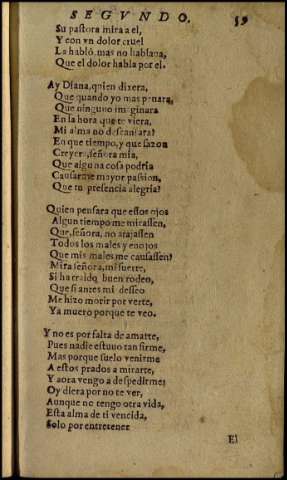 SEGVNDO. 59
Su pastora mira a el,
Y con vn dolor cruel
La habló, mas no hablaua,
Que el dolor habla por el.
Ay Diana, quien dixera,
Que quando yo mas penara,
Que ninguno imaginara
En la hora que te viera,
Mi alma no descansara?
En que tiempo, y que sazon
Creyera, señora mia,
Que alguna cosa podria
Causarme mayor passion,
Que tu presencia alegria?
Quien pensara que essos ojos
Algun tiempo me mirassen,
Que, señora, no atajassen
Todos los males y enojos
Que mis males me causassen?
Mira señora, mi suerte,
Si ha traido buen rodeo,
Que si antes mi desseo
Me hizo morir por verte,
Ya muero porque te veo.
Y no es por falta de amarte,
Pues nadie estuuo tan firme,
Mas porque suelo venirme
A estos prados a mirarte,
Y aora vengo a despedirme;
Oy diera por no te ver,
Aunque no tengo otra vida,
Esta alma de ti vencida,
Solo por entretener
El